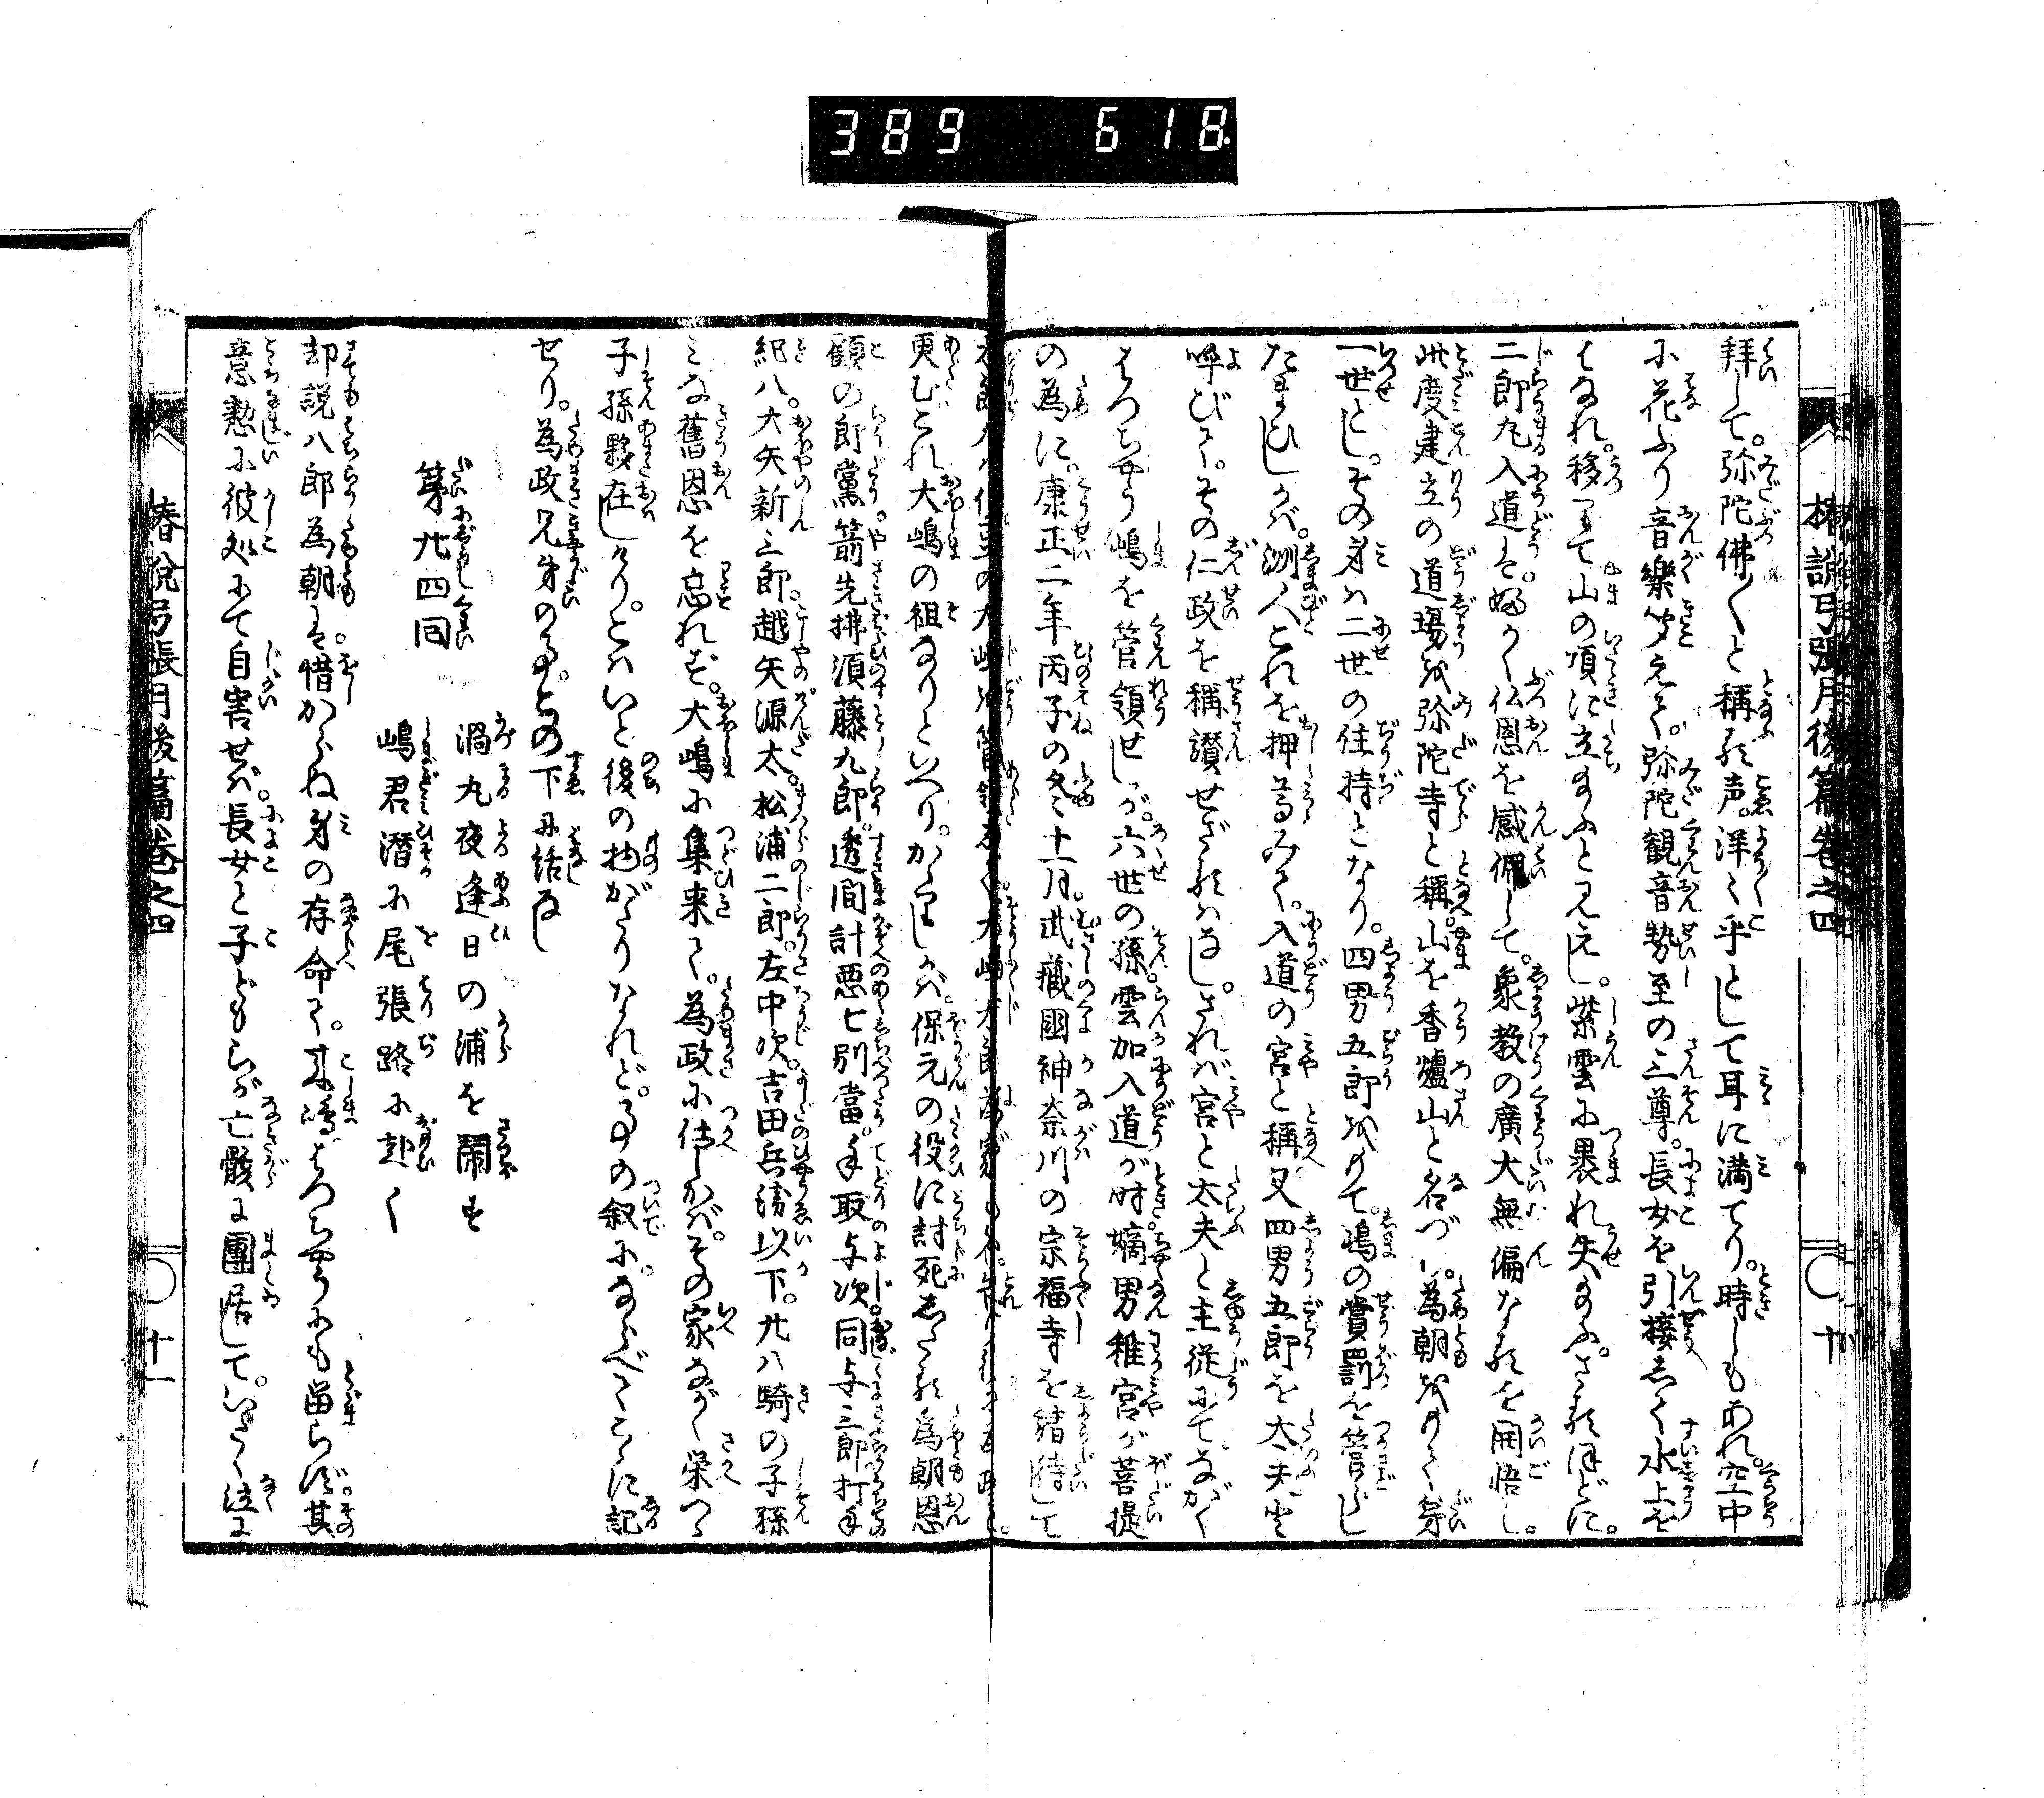 389 618
椿説弓張月後篇巻之四
十
拜して。弥陀佛〱と稱る声。洋〻乎として耳に満てり。時しもあれ空中
に花ふり音樂聞えて。弥陀観音勢至の三尊。長女を引接して水上を
はなれ。移りて山の項に立給ふと見えし。紫雲に裹れ失給ふ。さる程に。
二郎丸入道は。婦が仏恩を感佩して。象教の廣大無偏なるを開悟し。
此度建立の道場を弥陀寺と稱。山を香爐山と名づけ。為朝をもて第
一世とし。その身は二世の住持となり。四男五郎をもて。嶋の賞罰を管らし
たまひしかば。洲人これを押尊みて。入道の宮と稱又四男五郎を太夫と
呼びて。その仁政を稱讃せざるはなし。されば宮と太夫と主従にてながく
はちぢやう嶋を管領せしが。六世の孫。雲加入道が時。嫡男稚宮が菩提
の為に。康正二年丙子の冬十一月。武藏國神奈川の宗福寺を結待して
更むこれ大嶋の祖なりといへり。かゝりしかば。保元の役に討死したる為朝恩
顧の郎黨。箭先拂須藤九郎。透間計悪七別當。手取与次。同与三郎。打手
紀八。大矢新三郎。越矢源太。松浦二郎。左中次。吉田兵衛以下。廿八騎の子孫
みな舊恩を忘れず。大嶋に集来て。為政に仕しかば。その家ながく栄つゝ
子孫夥在しけり。こはいと後の物がたりなれど。事の叙に。なべてこゝに記
せり。為政兄弟の事。との下に話なし
第廿四回
渦丸夜逢日の浦を閙す
嶋君潜に尾張路に赴く
却説八郎為朝は。惜からぬ身の存命て。来嶋はちぢやうにも留らず。其
意懃に彼処にて自害せば。長女と子どもらが亡骸に團居して。いたく泣に
椿説弓張月後篇巻之四
十一